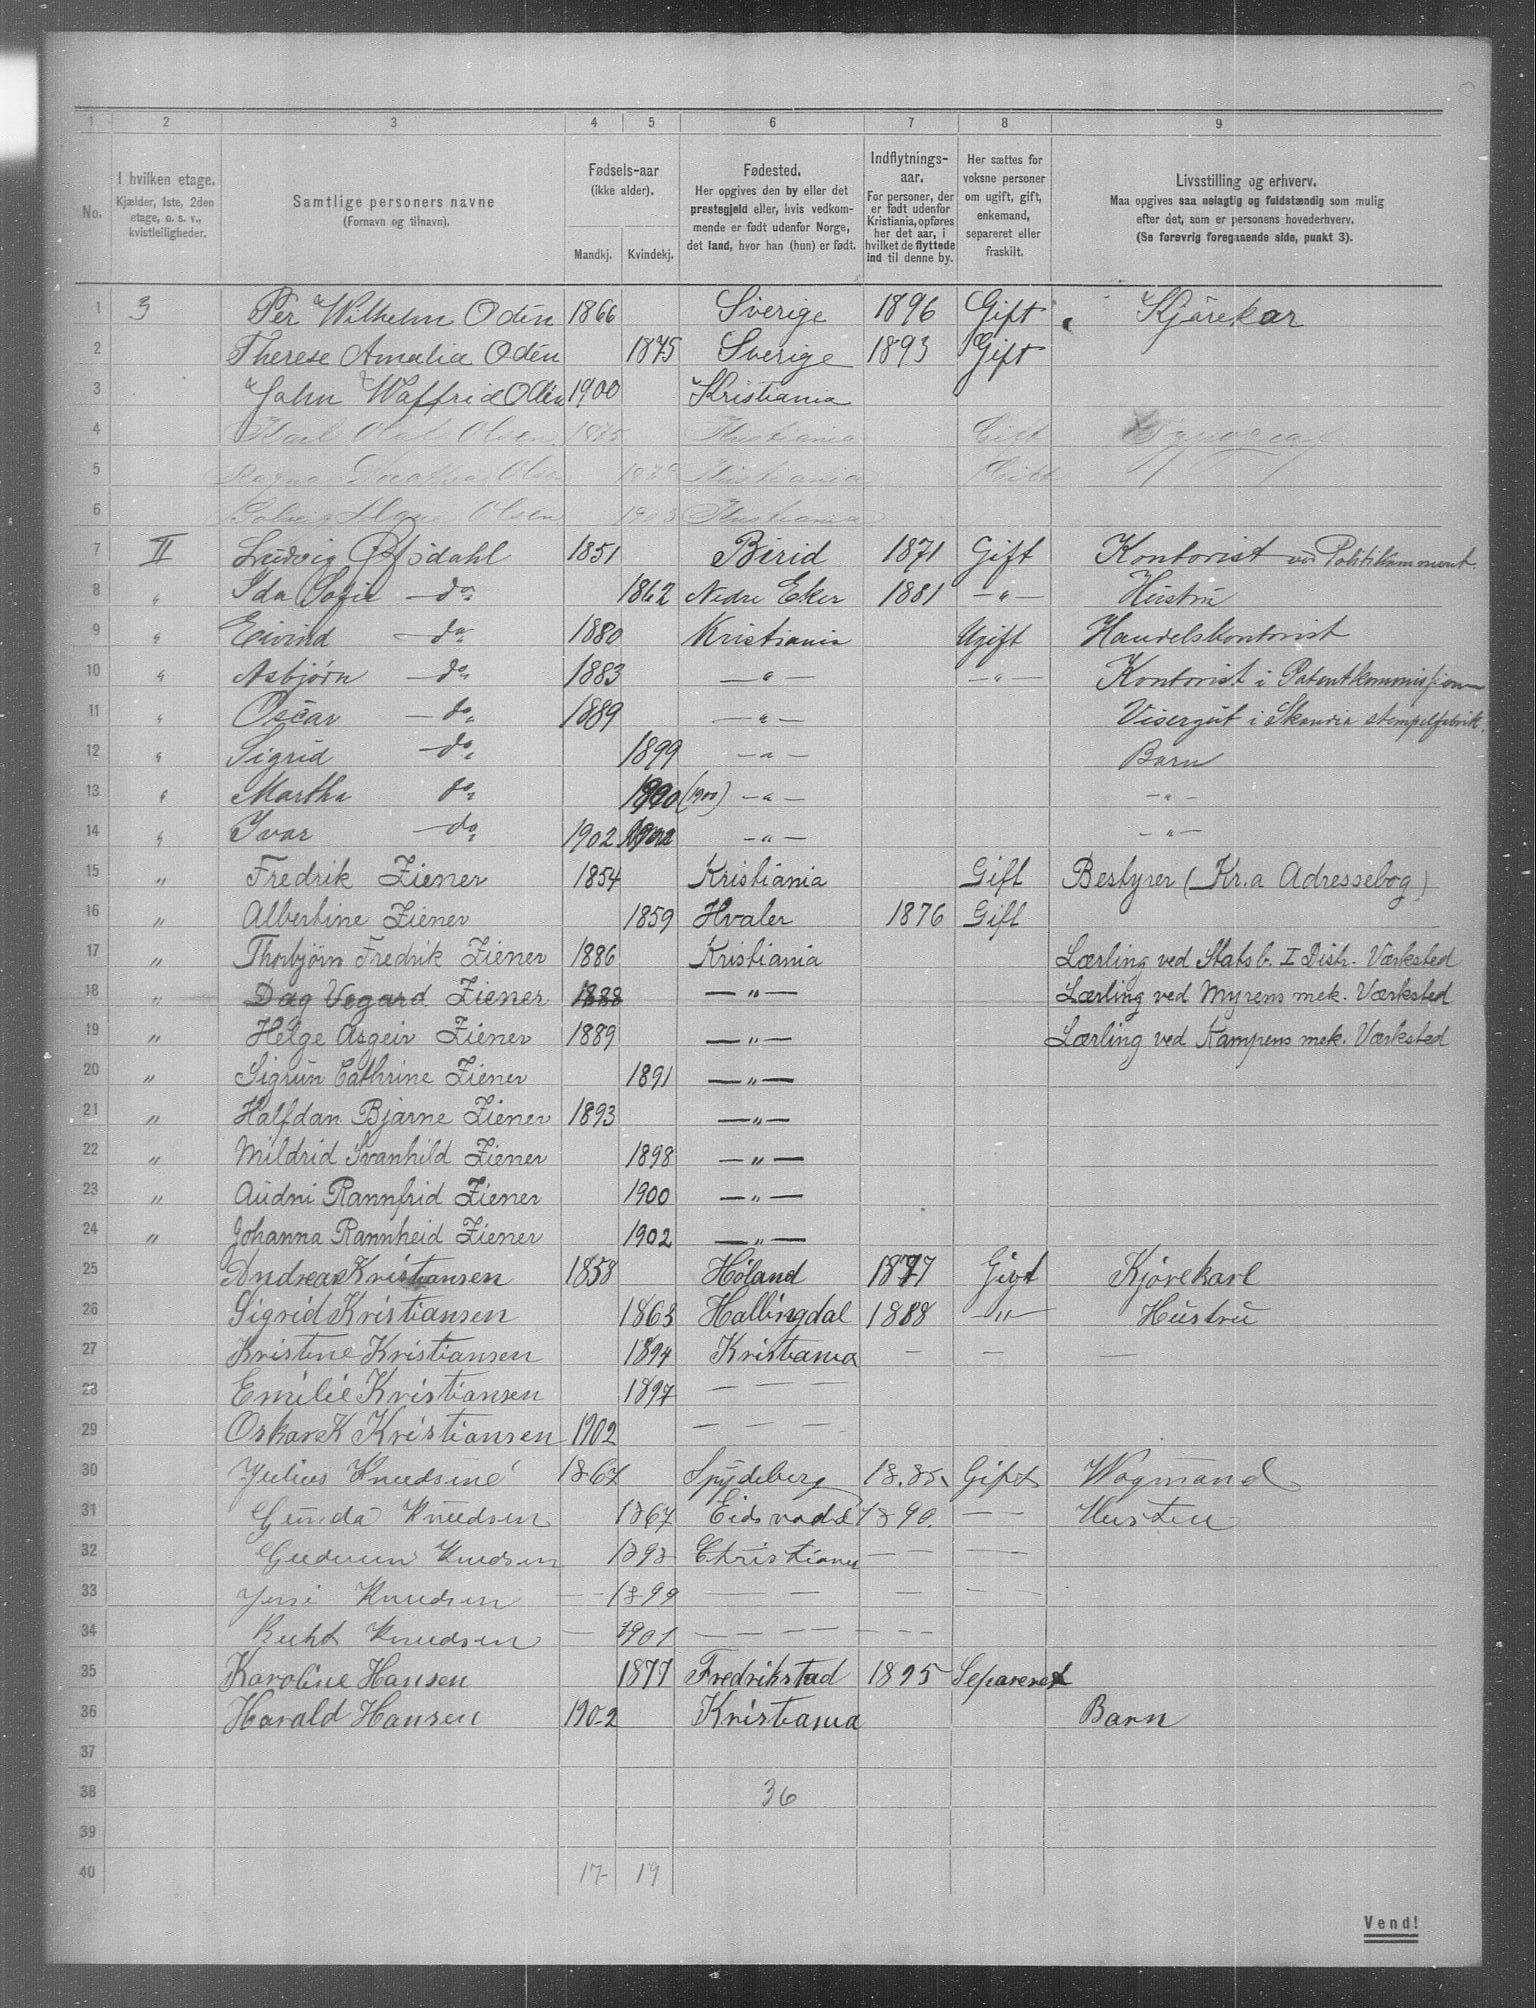 1 2 3 4 5 6 7 8 9
No. I hvilken etage. Kjælder, 1ste, 2den etage, o. s. v., kvistleiligheder. Samtlige personers navne (Fornavn og tilnavn). Fødsels-aar (ikke alder). Mandkj. Kvindekj. Fødested. Her opgives den by eller det prestegjeld eller, hvis vedkommende er født udenfor Norge, det land, hvor han (hun) er født. Indflytnings-aar. For personer, der er født udenfor Kristiania, opføres her det aar, i hvilket de flyttede ind til denne by. Her sættes for voksne personer om ugift, gift, enkemand, separeret eller fraskilt. Livsstilling og erhverv. Maa opgives saa nøiagtig og fuldstændig som mulig efter det, som er personens hovederhverv. (Se forøvrig foregaaende side, punkt 3).
1 3 Per Wilhelm Odén 1866 Sverige 1896 Gift Kjørekar
2 Therese Amalia Odén 1875 Sverige 1893 Gift
3 John Waffrid Odén 1900 Kristiania
4 Karl Olaf Olsen 1875 Kristiania Gift Typograf
5 Ragna Dorothea Olsen Kristiania Gift
6 Solveig Olsen 1903 Kristiania
7 II Ludvig 1851 Birid 1871 Gift Kontorist ved Politikammeret.
8 " Ida Sofie — do 1862 Nedre Eker 1881 — " — Hustru
9 " Eivind — do 1880 Kristiania Ugift Handelskontorist
10 " Asbjørn — do 1883 — " — — " — Kontorist i Patentkommission
11 " Oscar — do 1889 — " — Visergut i Skandia stempelfabrik.
12 " Sigrid — do 1899 — " — Barn
13 " Martha do 1900 (1900) — " — — " —
14 " Ivar — do 1902 1902 — " — — " —
15 " Fredrik Ziener 1854 Kristiania Gift Bestyrer (Kr.a Adressebog)
16 " Albertine Ziener 1859 Hvaler 1876 Gift
17 " Thorbjørn Fredrik Ziener 1886 Kristiania Lærling ved Statsb. I Distr. Værksted
18 " Dag Vegard Ziener 1888 — " — Lærling ved Myrens mek. Værksted
19 " Helge Asgeir Ziener 1889 — " — Lærling ved Kampens mek. Værksted
20 " Sigrun Cathrine Ziener 1891 — " —
21 " Halfdan Bjarne Ziener 1893 — " —
22 " Mildrid Svanhild Ziener 1898 — " —
23 " Audni Rannfrid Ziener 1900 — " —
24 " Johanna Rannheid Ziener 1902 — " —
25 Andreas Kristiansen 1858 Høland 1877 Givt Kjørekarl
26 Sigrid Kristiansen 1863 Hallingdal 1888 — " — Hustru
27 Kristine Kristiansen 1894 Kristiania — — —
28 Emilie Kristiansen 1897 — — —
29 Oskar K Kristiansen 1902 — — —
30 Julius Knudsen 1867 Spydeberg 1885 Gift Vogmand
31 Gunda Knudsen 1867 Eidsvold 1890. — — Hustru
32 Gudrun Knudsen 1893 Christiania — — — —
33 Knudsen — — 1899 — — — — — —
34 Knudsen — 1901 — — — — — — —
35 Karoline Hansen 1877 Fredrikstad 1895 Separeret
36 Harald Hansen 1902 Kristiania Barn
37
38 36
39
40 17 19
Vend!